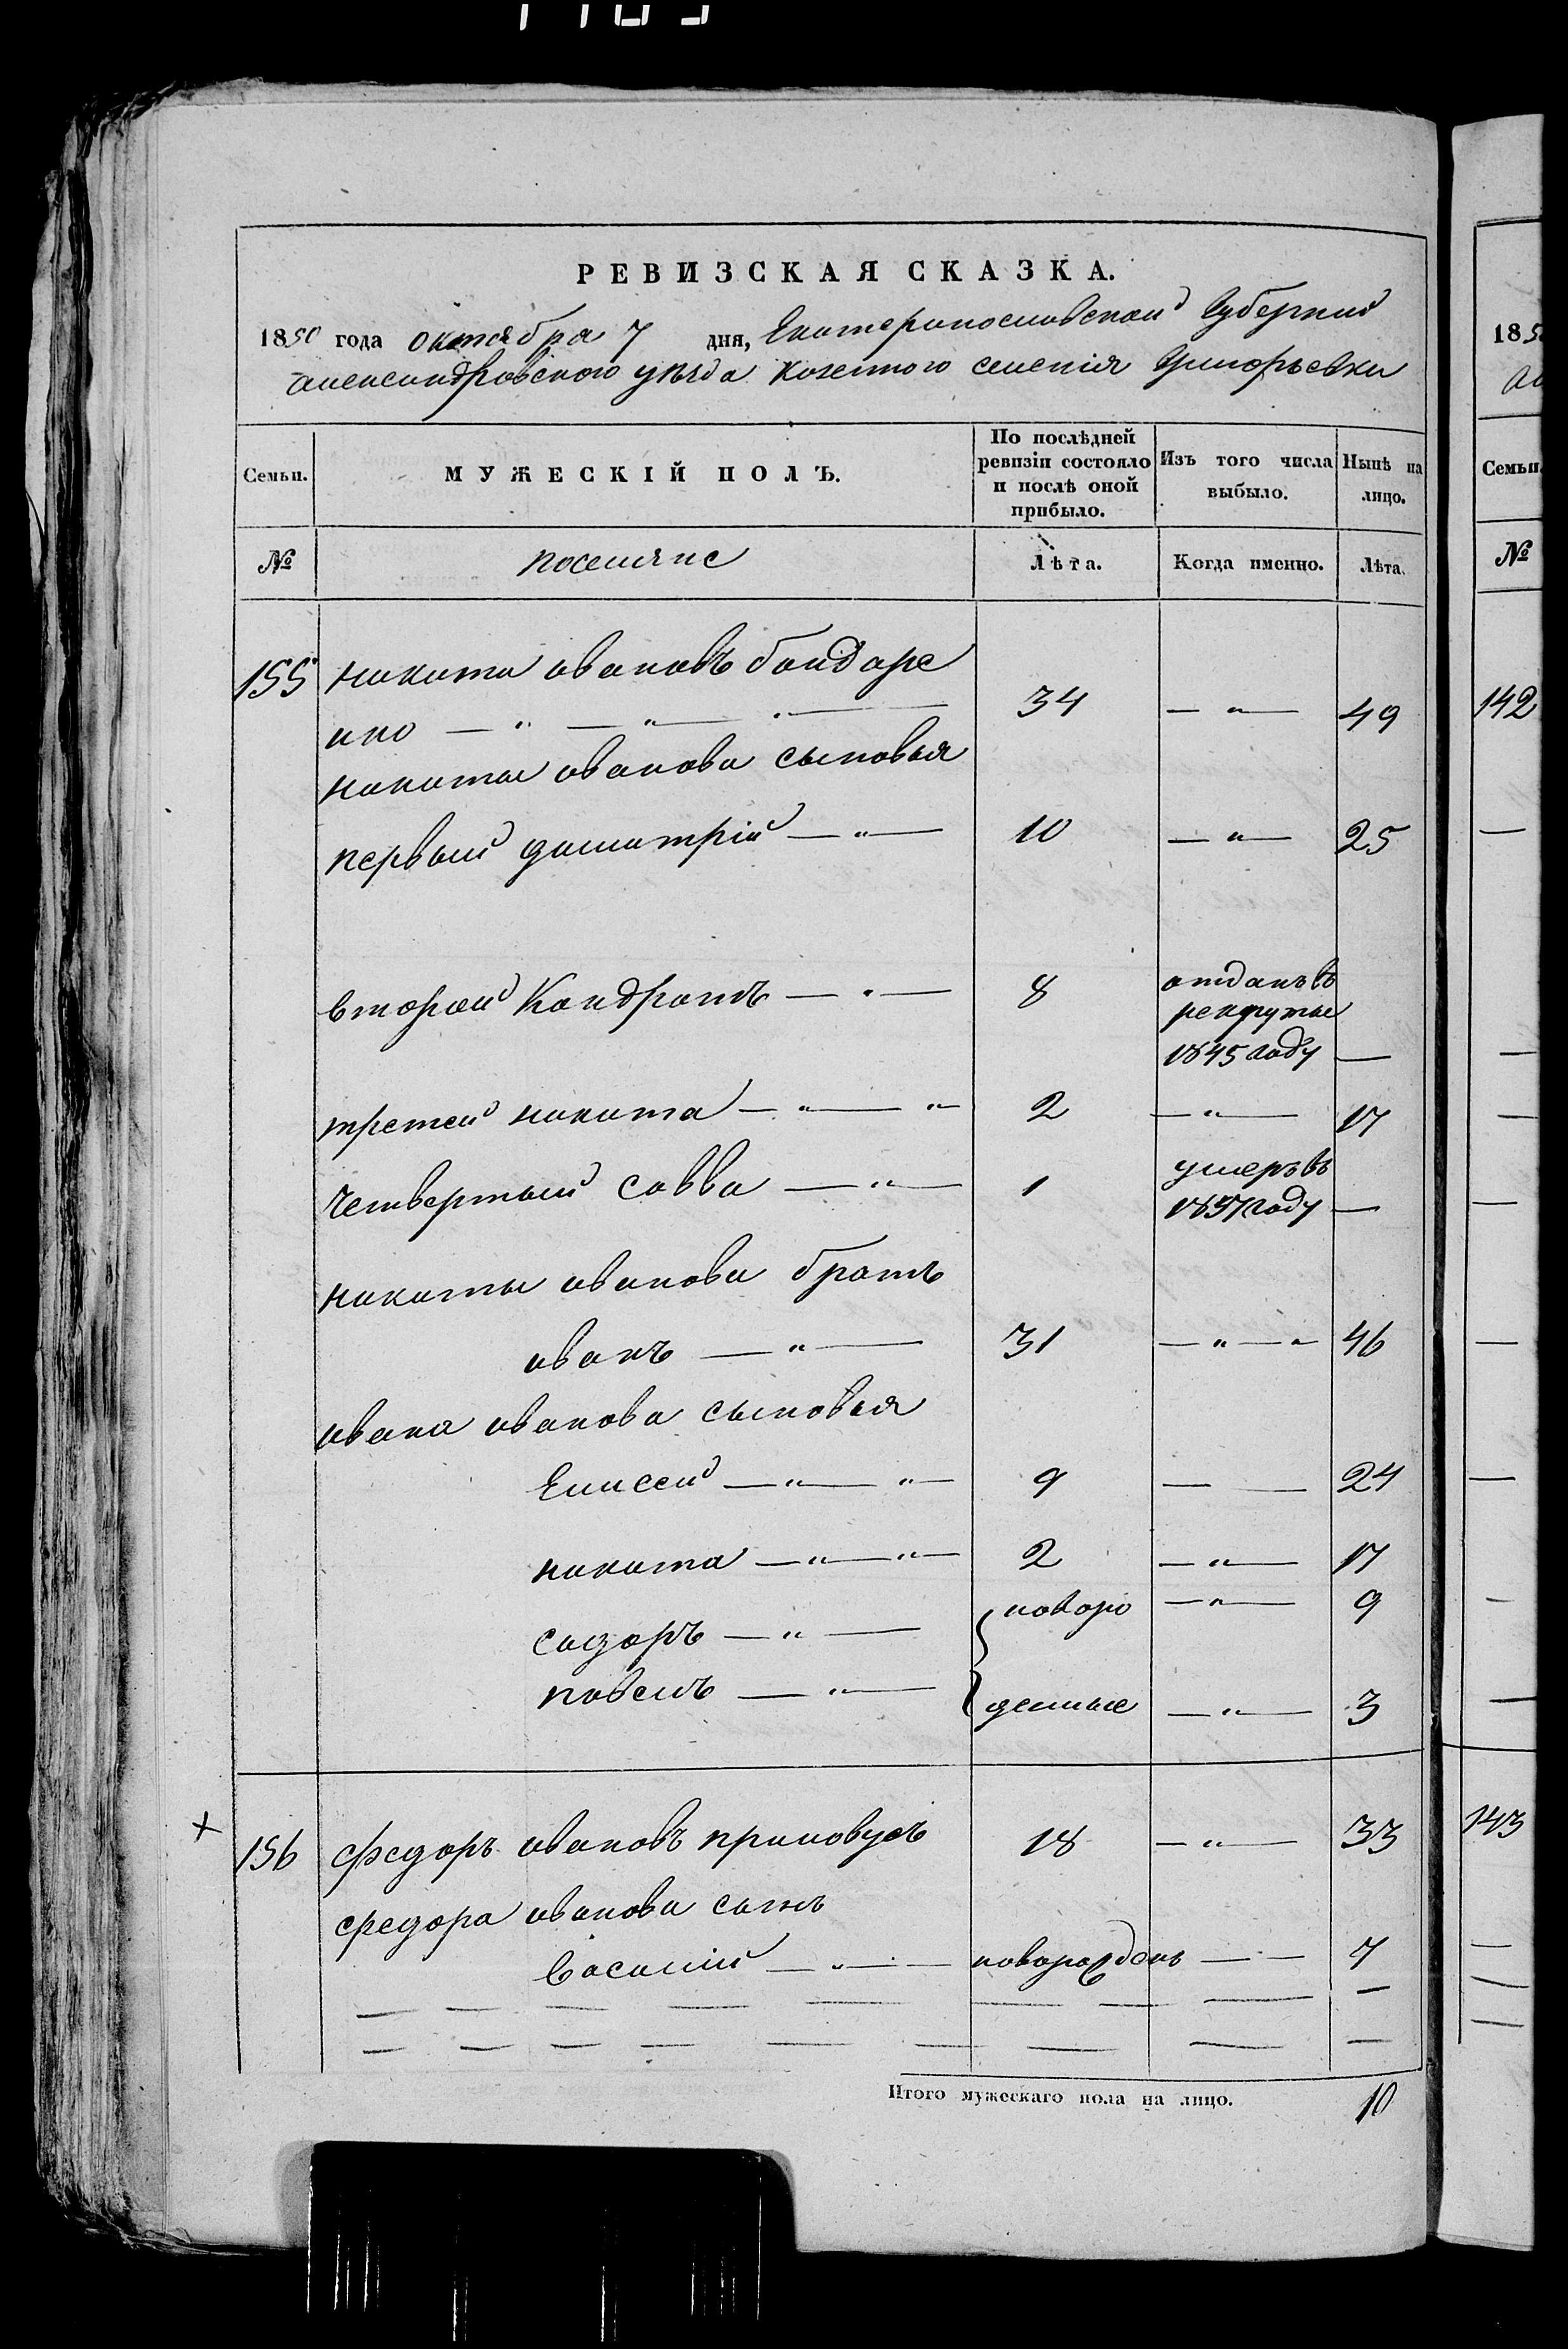 РЕВИЗСКАЯ СКАЗКА.
1850 года октября 7 дня, Екатеринославской Губернии
александровского уезда казенного селения Григорьевки
Семьи.
МУЖЕСКІЙ ПОЛЪ.
По послѣдней ревизіи состояло и послѣ оной прибыло.
Изъ того числа выбыло.
Нынѣ на лицо.
№
поселяне
Лѣта.
Когда именно.
Лѣта.
155 никита ивановъ бондаре
нко — " — " — 34 — " — 49
никиты иванова сыновья
первый димитрій — " — 10 — " — 25
второй Кондратъ — " — 8 отданъ въ
рекруты
1845 году —
третей никита — " — " 2 — " — 17
четвертый савва — " — 1 умеръ въ
1837 году —
никиты иванова братъ
иванъ — " — 31 — " — " 46
ивана иванова сыновья
Елисей — " — " — 9 — — 24
никита — " — " — 2 — " — 17
сидоръ — " — новоро — " — 9
павелъ — " — жденные — " — 3
156 федоръ ивановъ криовусъ 18 — " — 33
федора иванова сынъ
Василій — " — новорожденъ — 7
Итого мужескаго пола на лицо. 10
185
Семьи.
№
142
143